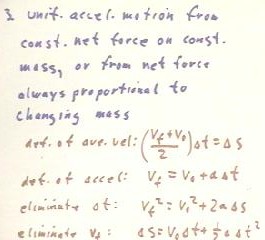 3. Unif. accel. motion from
const. net force on const.
mass, or from net force
always proportional to
changing mass
def. of ave. vel: (Vf+V₀/2)Δt = Δs
def. of accel: Vf = V₀ + aΔt
eliminate Δt: Vf² = V₀² + 2aΔs
eliminate Vf: Δs = V₀Δt + ½aΔt²